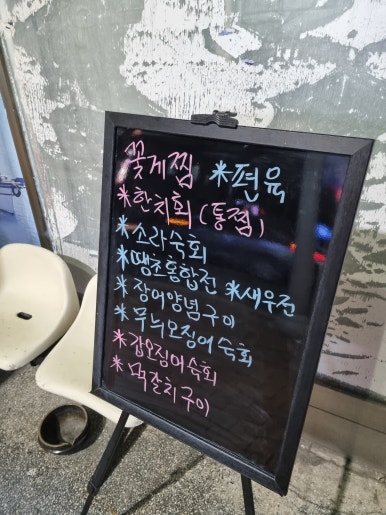 꽃게찜 *편육
*한치회(통찜)
*소라숙회
*땡초홍합전 *새우전
*장어양념구이
*무늬오징어숙회
*갑오징어숙회
*먹갈치구이